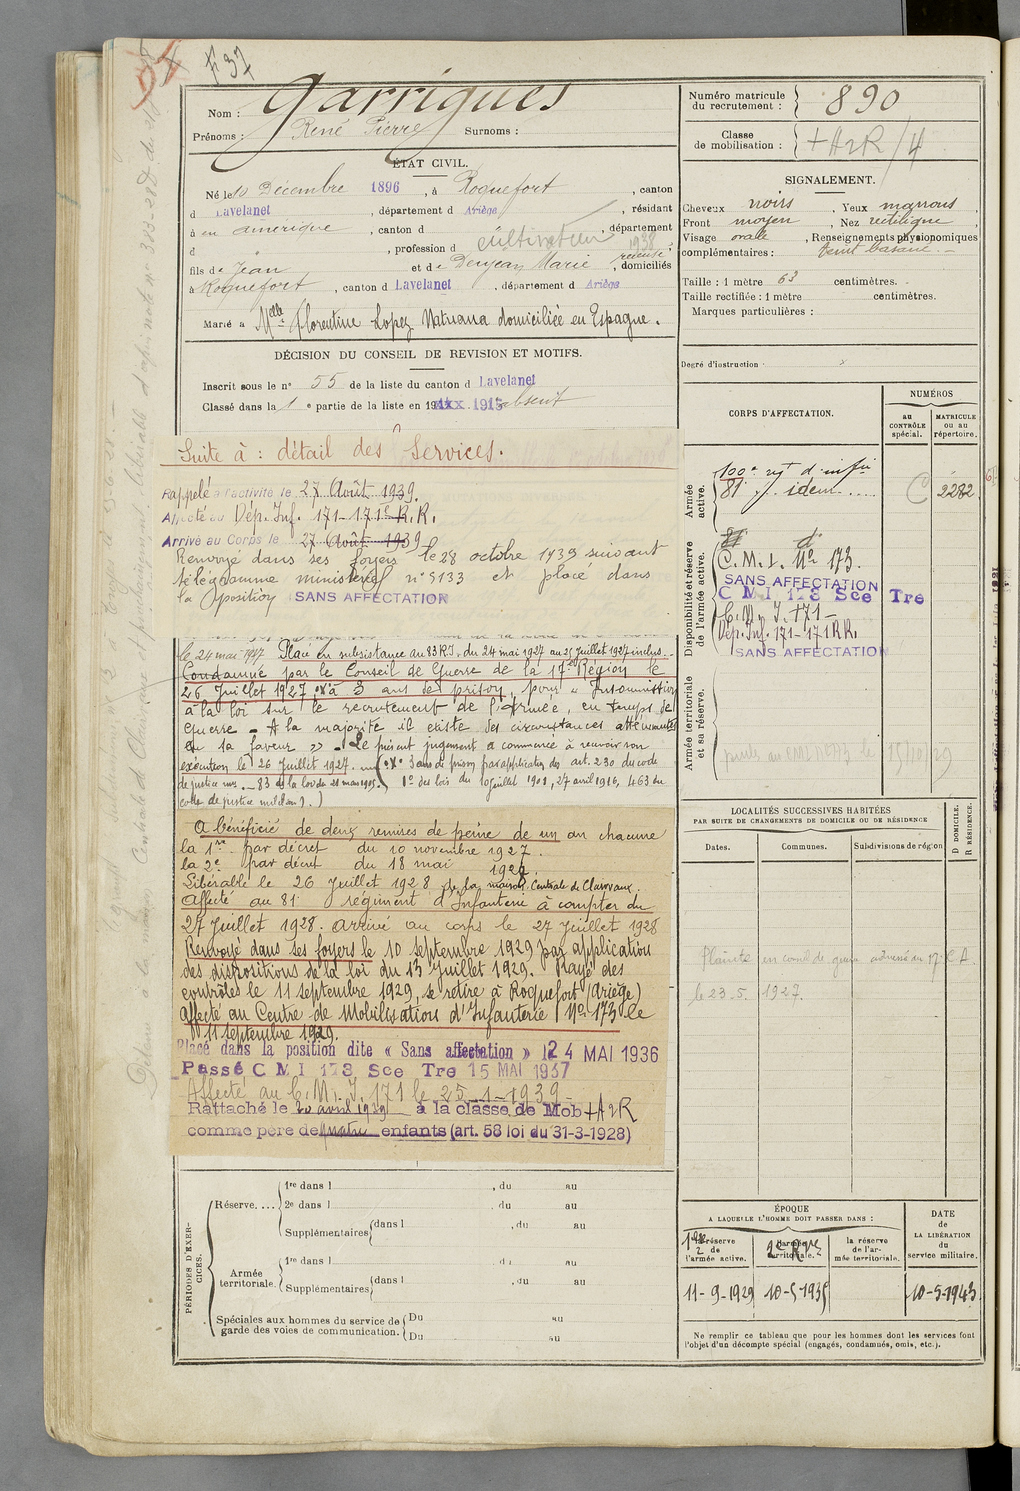 F 37
Garrigues
Nom :
Prénoms : René Pierre Surnoms :
ÉTAT CIVIL.
Né le 10 Décembre 1896, à Roquefort, canton
d Lavelanet, département d Ariège, résidant
à en amérique, canton d , département
d , profession d cultivateur
1938 recensé
fils de Jean et de Denjean Marie, domiciliés
à Roquefort, canton d Lavelanet, département d Ariège
Marié à Melle Florentine Lopez Natuana domiciliée en Espagne.
DÉCISION DU CONSEIL DE REVISION ET MOTIFS.
Inscrit sous le n° 55 de la liste du canton d Lavelanet
Classé dans la 1 e partie de la liste en 1915 absent
Suite à : détail des Services.
Rappelé à l'activité le 27 Août 1939.
Affecté au Dép. Inf. 171-171e R.R.
Arrivé au Corps le 27 Août 1939
Renvoyé dans ses foyers le 28 octobre 1939 suivant
télégramme ministériel n° 5133 et placé dans
la position SANS AFFECTATION
le 24 mai 1927 Placé en subsistance au 83 R.I. du 24 mai 1927 au 25 juillet 1927 inclus.
Condamné par le Conseil de Guerre de la 17e Région le
26 Juillet 1927 à 3 ans de prison, pour « Insoumission
à la loi sur le recrutement de l'Armée, en temps de
Guerre - A la majorité il existe des circonstances atténuantes
en sa faveur » - Le présent jugement a commencé à recevoir son
exécution le 26 Juillet 1927. (3 ans de prison par application des art. 230 du code
de justice mre - 83 de la loi du 21 mars 1905 1° des lois du 10 juillet 1901, 27 avril 1916, 463 du
code de justice militaire.)
A bénéficié de deux remises de peine de un an chacune
la 1re par décret du 10 novembre 1927.
la 2e par décret du 18 mai 1928.
Libérable le 26 Juillet 1928 de la maison Centrale de Clairvaux.
Affecté au 81 régiment d'Infanterie à compter du
27 Juillet 1928. arrivé au corps le 27 Juillet 1928
Renvoyé dans ses foyers le 10 septembre 1929 par application
des dispositions de la loi du 13 Juillet 1929. Rayé des
contrôles le 11 septembre 1929, se retire à Roquefort (Ariège)
affecté au Centre de Mobilisation d'Infanterie No 173 le
11 septembre 1929.
Placé dans la position dite « Sans affectation » 24 MAI 1936
Passé C M I 173 Sce Tre 15 MAI 1937
Affecté au C. M. I. 171 le 25-1-1939 -
Rattaché le 20 avril 1939 à la classe de Mob + A2R
comme père de quatre enfants (art. 58 loi du 31-3-1928)
PÉRIODES D'EXERCICES.
Réserve....
1re dans l , du au
2e dans l , du au
Supplémentaires dans l , du au
Armée territoriale.
1re dans l , du au
Supplémentaires dans l , du au
Spéciales aux hommes du service de garde des voies de communication.
Du au
Du au
Numéro matricule du recrutement : 890
Classe de mobilisation : + A2R/4
SIGNALEMENT.
Cheveux noirs, Yeux marrons,
Front moyen, Nez rectiligne,
Visage ovale, Renseignements physionomiques
complémentaires : teint basané. -
Taille : 1 mètre 63 centimètres.
Taille rectifiée : 1 mètre centimètres.
Marques particulières :
Degré d'instruction x
CORPS D'AFFECTATION.
NUMÉROS
au CONTRÔLE spécial.
MATRICULE ou au répertoire.
Armée active.
100e rgt d'infie
81 idem.... C 2282
Disponibilité et réserve de l'armée active.
C.M.I. No 173.
SANS AFFECTATION
C M I 173 Sce Tre
C. M. I. 171 -
Dép. Inf. 171-171 R.R.
SANS AFFECTATION
Armée territoriale et sa réserve.
15/10/29
LOCALITÉS SUCCESSIVES HABITÉES
PAR SUITE DE CHANGEMENTS DE DOMICILE OU DE RÉSIDENCE
Dates.
Communes.
Subdivisions de région
D DOMICILE.
R RÉSIDENCE.
Plainte en conseil de guerre adressée au 17e C A.
le 23.5.1927.
ÉPOQUE
A LAQUELLE L'HOMME DOIT PASSER DANS :
DATE
DE LA LIBÉRATION
du
service militaire.
la réserve de l'armée active.
1ère
2
l'armée territoriale.
2e Rve
la réserve de l'armée territoriale.
11-9-1929
10-5-1935
10-5-1943
Ne remplir ce tableau que pour les hommes dont les services font
l'objet d'un décompte spécial (engagés, condamnés, omis, etc.).